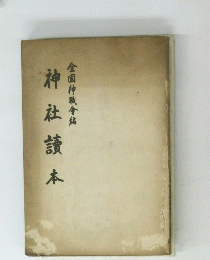 全國神職會編
神社讀本